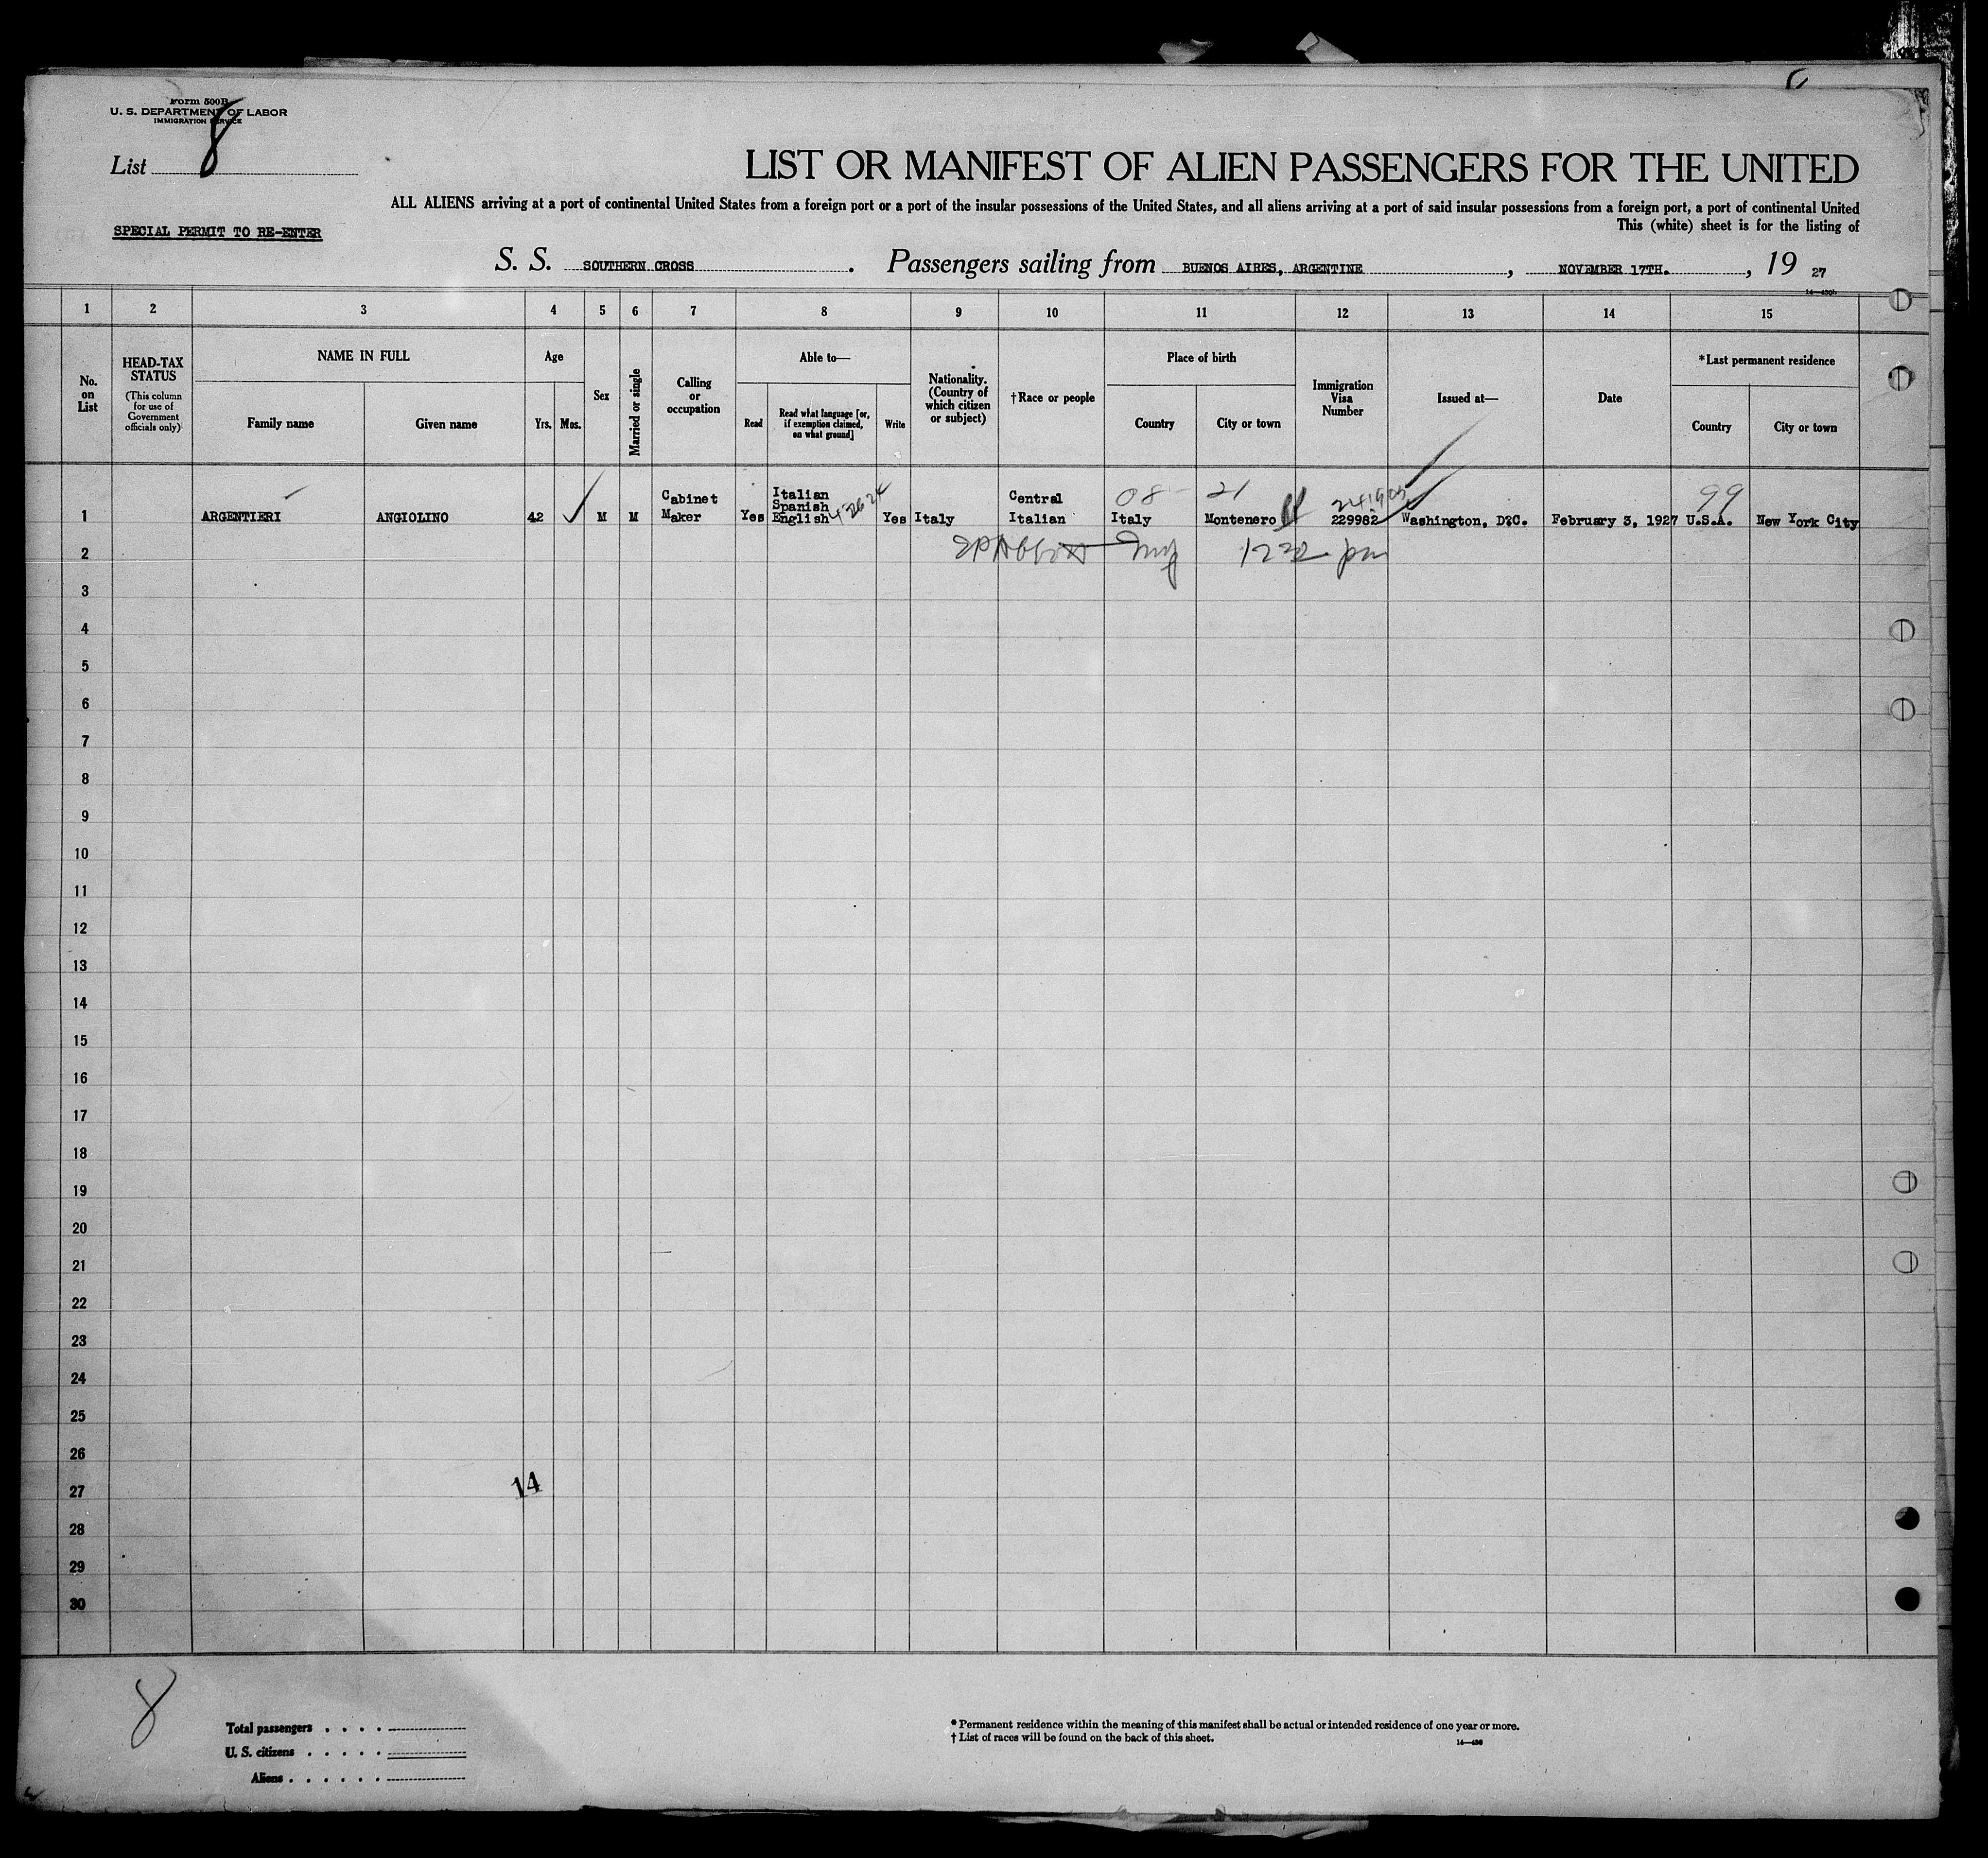 Form 500B
U. S. DEPARTMENT OF LABOR
IMMIGRATION SERVICE
List 8
LIST OR MANIFEST OF ALIEN PASSENGERS FOR THE UNITED
ALL ALIENS arriving at a port of continental United States from a foreign port or a port of the insular possessions of the United States, and all aliens arriving at a port of said insular possessions from a foreign port, a port of continental United
This (white) sheet is for the listing of
SPECIAL PERMIT TO RE-ENTER
S. S. SOUTHERN CROSS. Passengers sailing from BUENOS AIRES, ARGENTINE, NOVEMBER 17TH., 19 27
1 2 3 4 5 6 7 8 9 10 11 12 13 14 15
No. on List
HEAD-TAX STATUS
(This column for use of Government officials only)
NAME IN FULL
Family name
Given name
Age
Yrs.
Mos.
Sex
Married or single
Calling or occupation
Able to—
Read
Read what language [or, if exemption claimed, on what ground]
Write
Nationality. (Country of which citizen or subject)
†Race or people
Place of birth
Country
City or town
Immigration Visa Number
Issued at—
Date
*Last permanent residence
Country
City or town
08 21 99
1 ARGENTIERI ANGIOLINO 42 M M Cabinet Maker Yes Italian Spanish English Yes Italy Central Italian Italy Montenero 229982 Washington, D.C. February 3, 1927 U.S.A. New York City
2
3
4
5
6
7
8
9
10
11
12
13
14
15
16
17
18
19
20
21
22
23
24
25
26
27
14
28
29
30
8
Total passengers
U. S. citizens
Aliens
* Permanent residence within the meaning of this manifest shall be actual or intended residence of one year or more.
† List of races will be found on the back of this sheet.